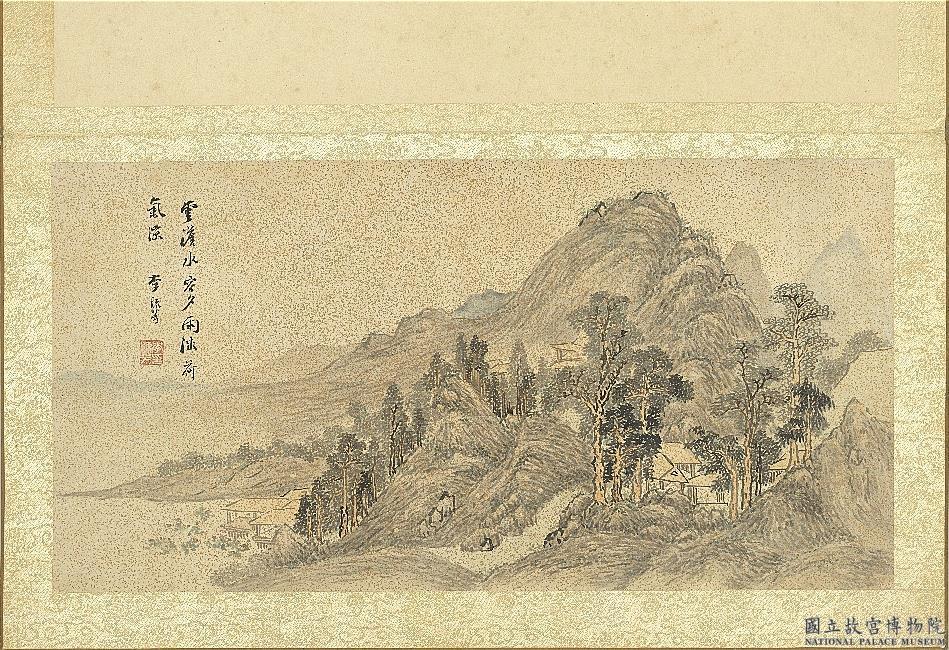 雲澹水容夕雨微荷
氣涼 李流芳
國立故宮博物院
NATIONAL PALACE MUSEUM